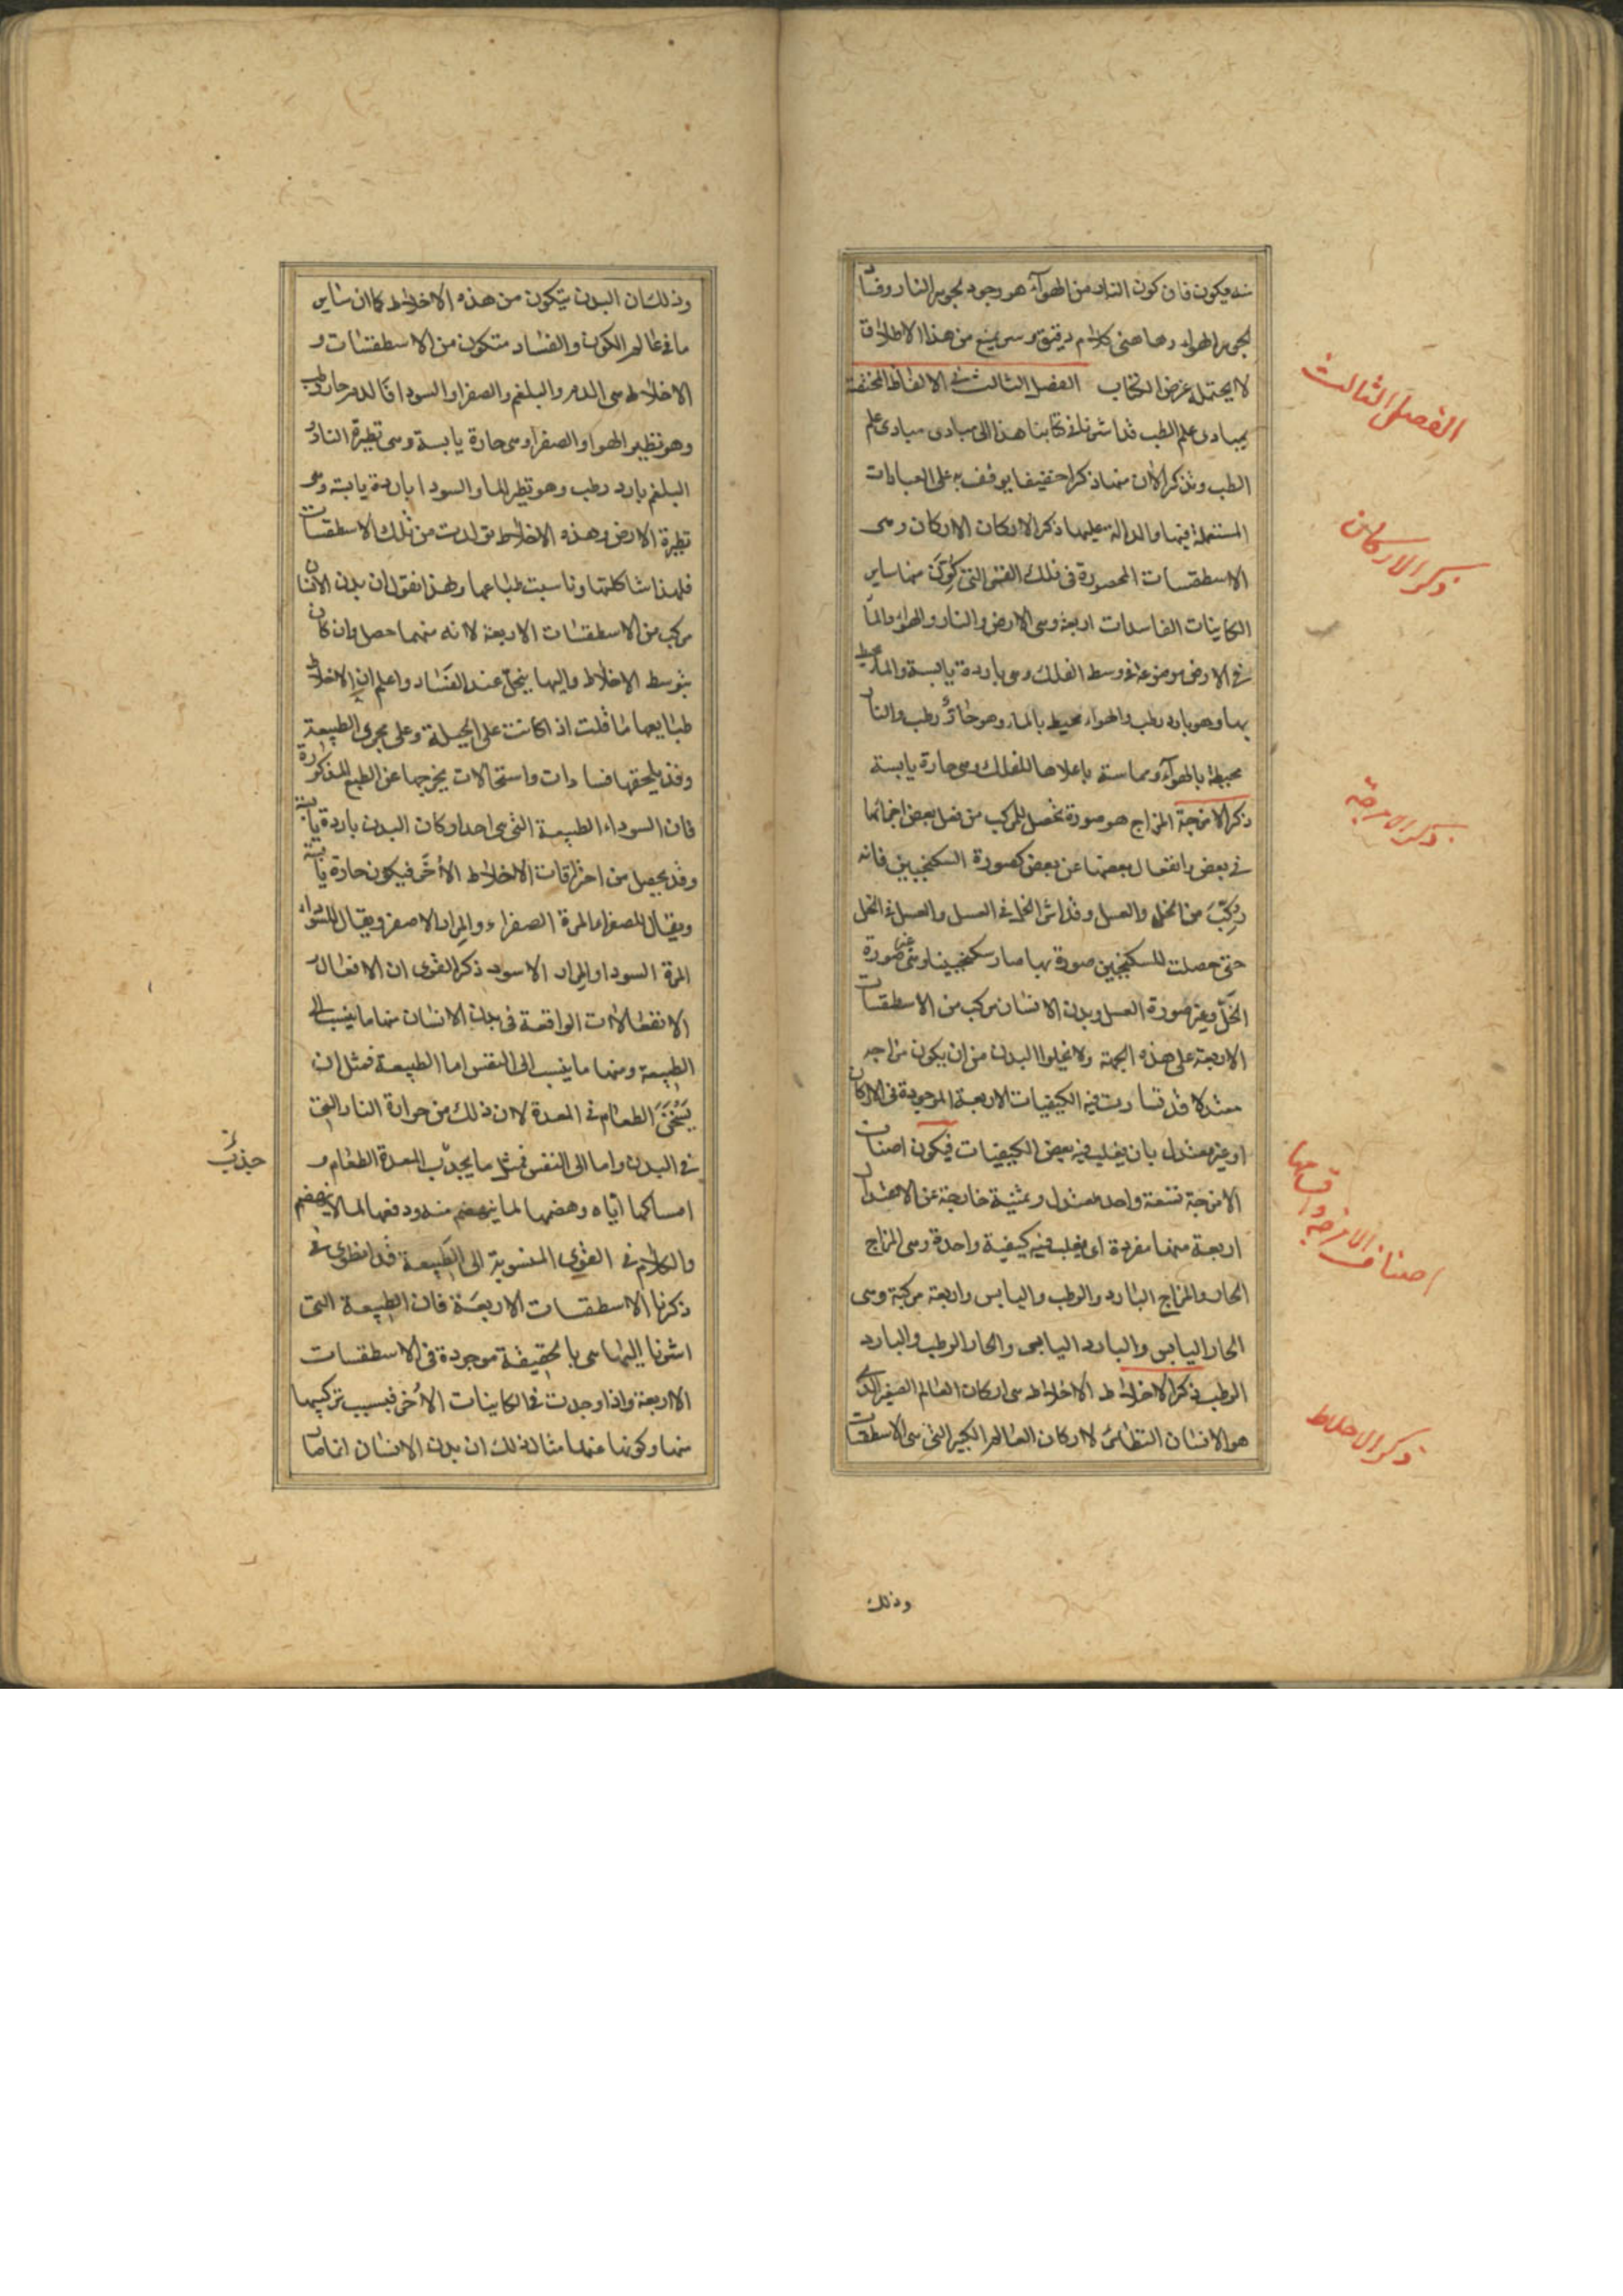 منه يكون فان كون النار من الهوآء هو وجود لجوهر النار وفسا
لجوهر الهواء وهاهنى كلام دقيق يمنع من هذا الاطلاق
لا يحتمله غرض الكتاب الفصل الثالث فى الالفاظ المختصة
بمبادى علم الطب قد اشرنا فى كتابنا هذا الى مبادى مبادى علم
الطب ونذكر الان منها ذكرا خفيفا يوقف به على العبارات
المستعملة فيها والدالة عليها ذكر الاركان الاركان وهى
الاسطقسات المحصورة فى فلك القمر التى كوّن منها ساير
الكاينات الفاسدات اربعة وهى الارض والنار والهواء والمآ
فى الارض موضوعة فى وسط الفلك وهى باردة يابسة والمآ محيط
بها وهو بارد رطب والهواء محيط بالماء وهو حارّ رطب والنار
محيطة بالهوآء ومماسة باعلاها للفلك وهى حارة يابسة
ذكر الامزجة المزاج هو صورة تحصل للمركب من فعل بعض اجزائها
فى بعض وانفعال بعضها عن بعض كصورة السكنجبين فانه
ركّبَ من الخل والعسل وقد اثر الخل فى العسل والعسل فى الخل
حتى حصلت للسكنجبين صورة بها صار سكنجبينا وهى غير صورة
الخلّ وغير صورة العسل وبدن الانسان مركب من الاسطقسات
الاربعة على هذه الجهة ولا يخلوا البدن من ان يكون مزاجه
معتدلا قد تساوت فيه الكيفيات الاربعة الموجودة فى الاركان
او غير معتدل بان يغلب فيه بعض الكيفيات فيكون اصناف
الامزجة تسعة واحد معتدل وثمنية خارجة عن الاعتدال
اربعة منها مفردة اى يغلب فيه كيفية واحدة وهى المزاج
الحار والمزاج البارد والرطب واليابس واربعة مركبة وهى
الحار اليابس والبارد اليابس والحار الرطب والبارد
الرطب ذكر الاخلاط الاخلاط هى اركان العالم الصغير الذى
هو الانسان النظائر لاركان العالم الكبير التى هى الاسطقسات
وذلك
الفصل الثالث
ذكر الاركان
ذكر الامزجة
اصناف الامزجة واقسامها
ذكر الاخلاط
وذلك ان البدن يتكون من هذه الاخلاط كما ان ساير
ما فى عالم الكون والفساد متكون من الاسطقسات و
الاخلاط هى الدم والبلغم والصفرا والسودا فالدم حار رطب
وهو نظير الهوا والصفرا وهى حارة يابسة وهى نظيرة النار و
البلغم بارد رطب وهو نظير الماء والسودا باردة يابسة وهى
نظيرة الارض وهذه الاخلاط تولدت من تلك الاسطقسات
فلهذا شاكلتها وناسبت طباعها ولهذا نقول ان بدن الانسان
مركب من الاسطقسات الاربعة لانه منهما حصل وان كان
بتوسط الاخلاط واليها ينحلّ عند الفَساد واعلم ان الاخلاط
طبايعها ما قلت اذا كانت على الجبلة وعلى مجرى الطبيعة
وقد يلحقها فسادات واستحالات يخرجها عن الطبع المذكورة
فان السوداء الطبيعية التى هى احد اركان البدن باردة يابسة
وقد يحصل من احتراقات الاخلاط الاُخَر فيكون حارة يابسة
ويقال للصفراء المرة الصفراء والمرار الاصفر ويقال للسوداء
المرة السودا والمرار الاسود ذكر القوى ان الافعال و
الانفعالات الواقعة فى بدن الانسان منها ما ينسب الى
الطبيعة ومنها ما ينسب الى النفس اما الطبيعة فمثل ان
يَسْخَنَ الطعام فى المعدة لان ذلك من حرارة النار التى
فى البدن واما الى النفس فمثل ما يجذب المعدة الطعام و
امساكها اياه وهضمها لما ينهضم منه ودفعها لما لا ينهضم
والكلام فى القوى المنسوبة الى الطبيعة قد انطوى فى
ذكرنا الاسطقسات الاربعَة فان الطبيعة التى
اشرنا اليها هى بالحقيقة موجودة فى الاسطقسات
الاربعة واذا وجدت فى الكاينات الاُخر فبسبب تركيبها
منها وكونها عنها مثال ذلك ان بدن الانسان اذا مات
جذبُ